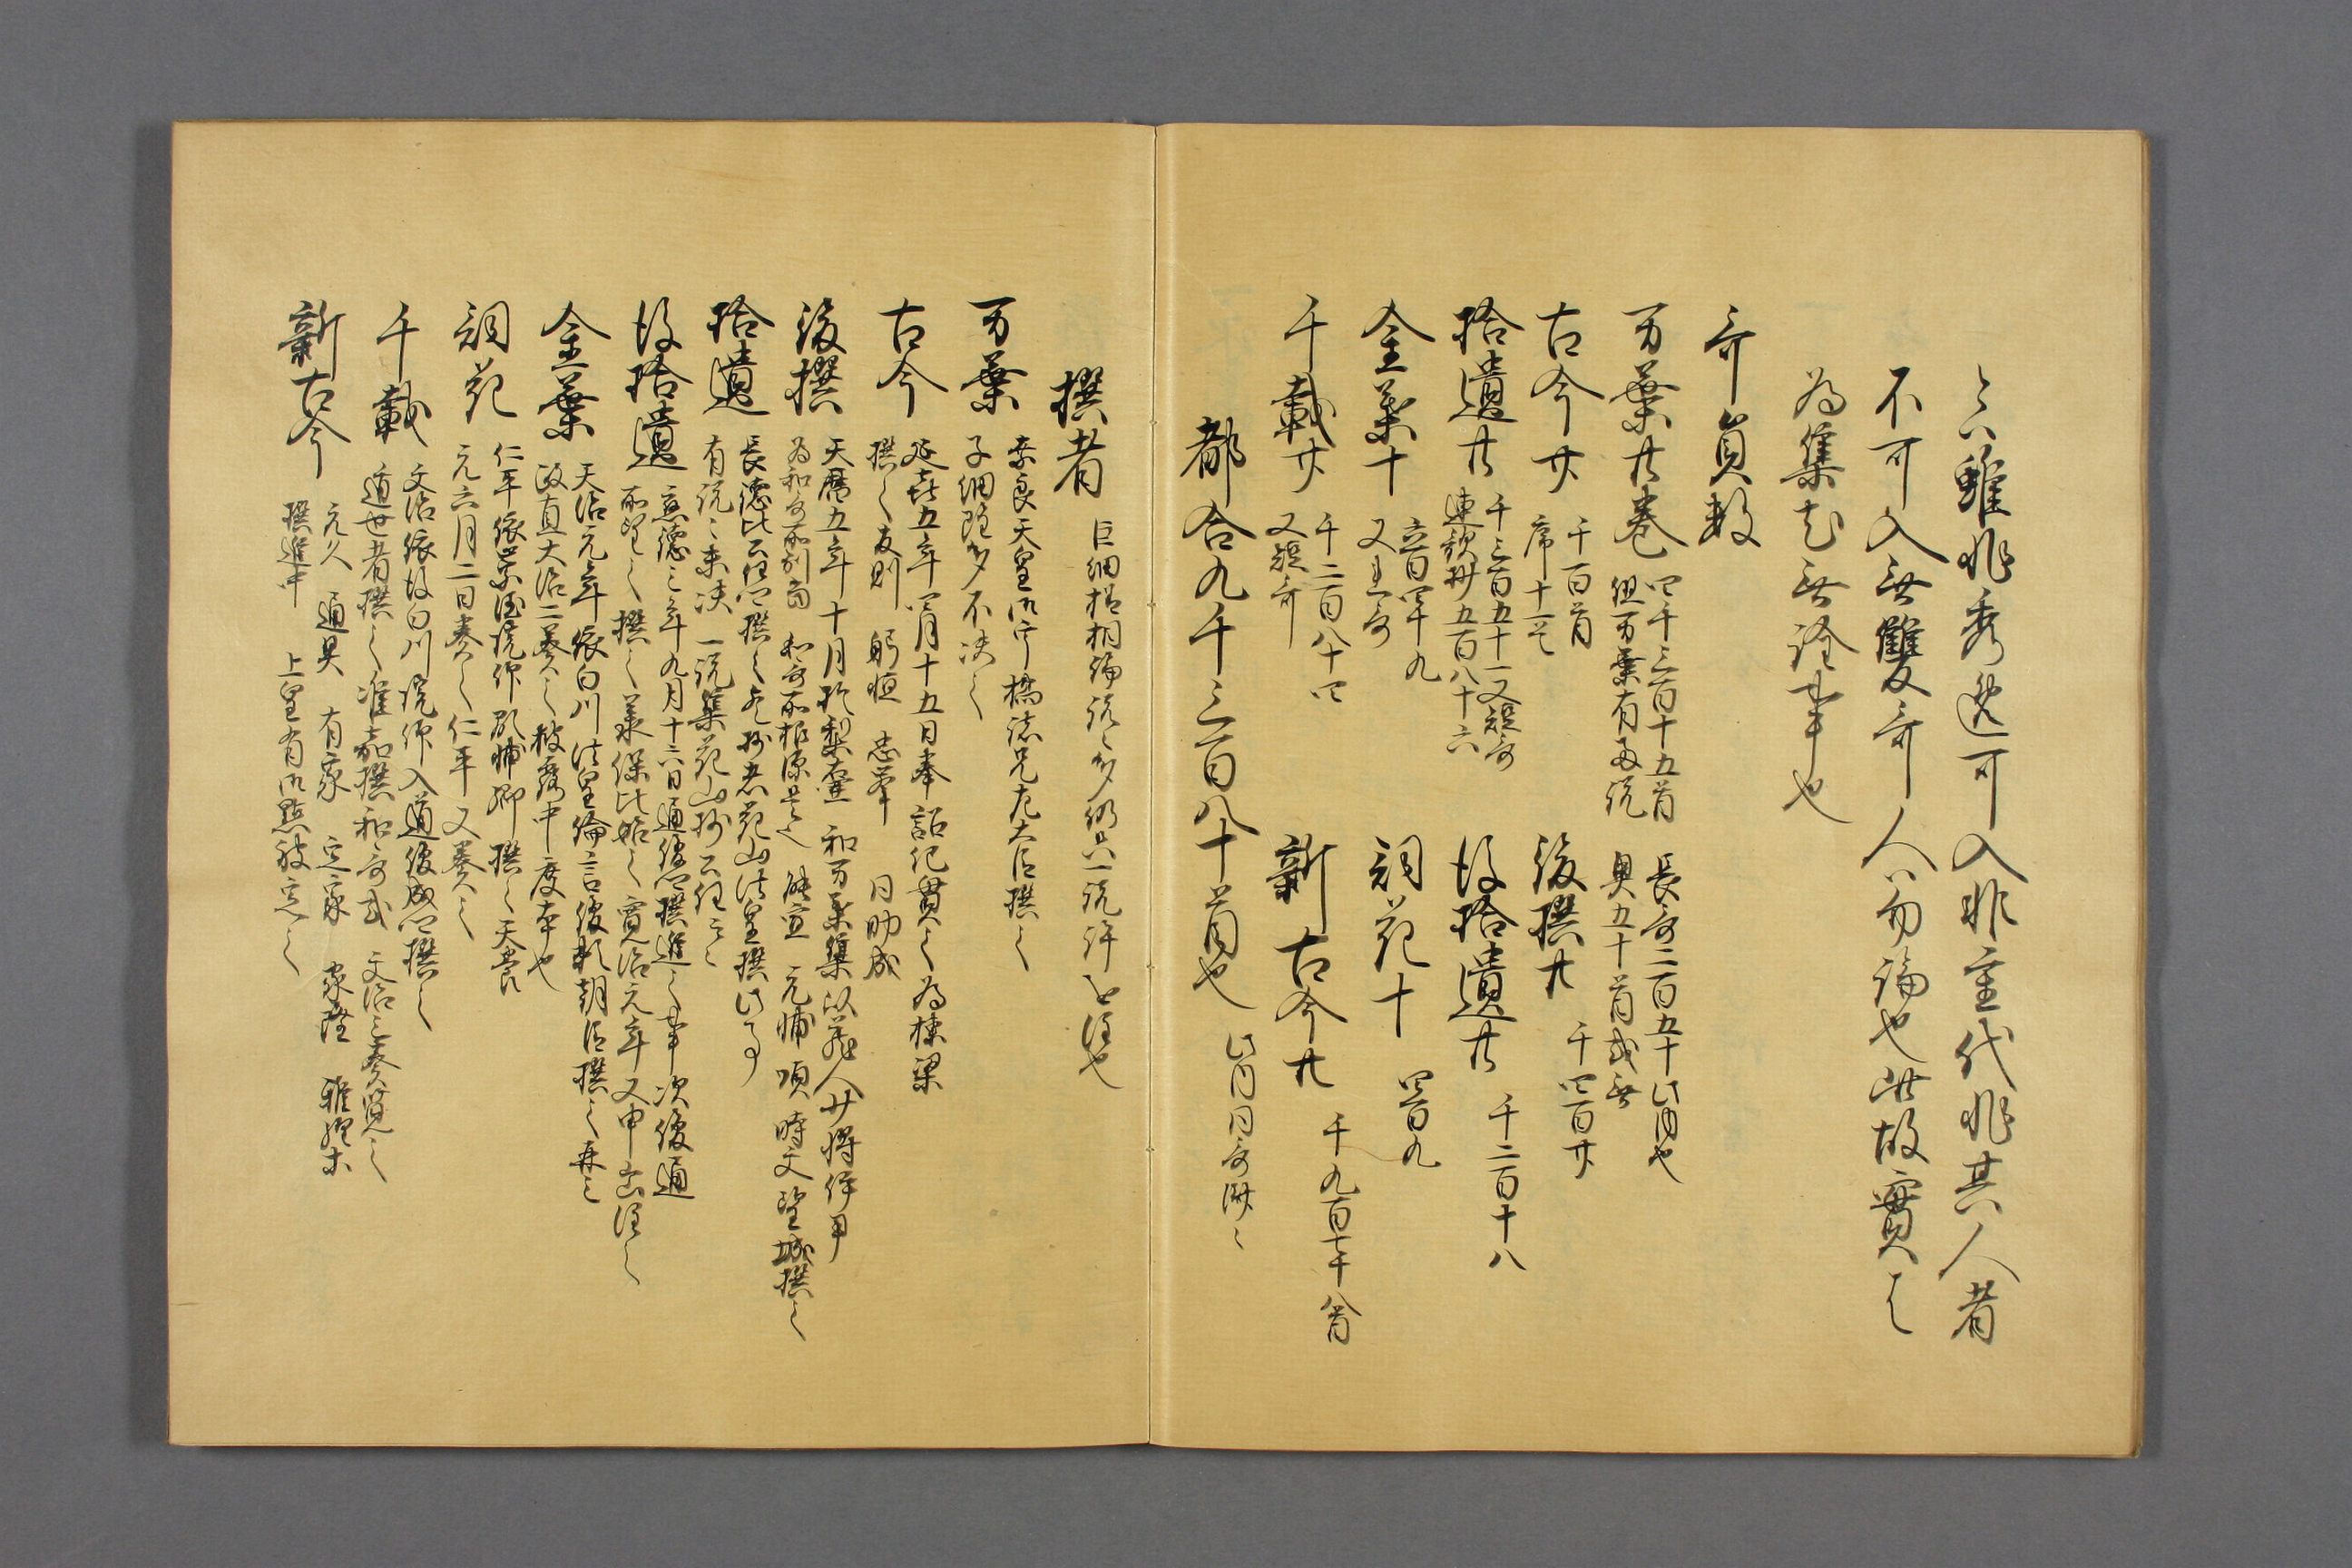 々雖非秀逸可入非重代非其人者
不可入無雙哥人勿論也此故實
為集尤無詮事也
哥員数
万葉廿巻
四千三百十五首
但万葉有両説
長哥二百五十此内也
奥五十首或無
古今廿
千百首
序十一
後撰廿
千四百廿
拾遺廿
千三百五十一又短哥
連歌抄五百八十六
後拾遺廿
千二百十八
金葉十
六百四十九
又連哥
詞花十
四百九
千載廿
千二百八十四
又短哥
新古今廿
千九百七十八首
都合九千三百八十首也
此内同哥済々
撰者
巨細楷桐論説多仍只一説許を注也
万葉
奈良天皇御宇橘諸兄左大臣撰之
子細雖多不決之
古今
延喜五年四月十五日奉詔紀貫之為棟梁
撰之友則 躬恒 忠岑 同助成
後撰
天暦五年十月於梨壷 和万葉集以蔵人少将伊尹
為和哥所別当 和哥所根源是也 能宣 元輔 順 時文 望城撰之
拾遺
長徳比公任卿撰之 抄者花山法皇撰此事
有説々未決 一説集花山抄公任云々
後拾遺
應徳三年九月十六日通俊卿撰進之 事次俊通
所望之撰之 承保比始之 寛治元年又申出注之
金葉
天治元年依白川法皇綸言俊頼朝臣撰之 再三
改直大治二奏之 披露中度本也
詞花
仁平依崇徳院仰顕輔卿撰之 天養
元六月二日奏之 仁平又奏之
千載
文治依故白川院仰入道俊成卿撰之
遁世者撰之准喜撰和哥式 文治三奏覧之
新古今
元久 通具 有家 定家 家隆 雅経等
撰進中 上皇有御點被定之